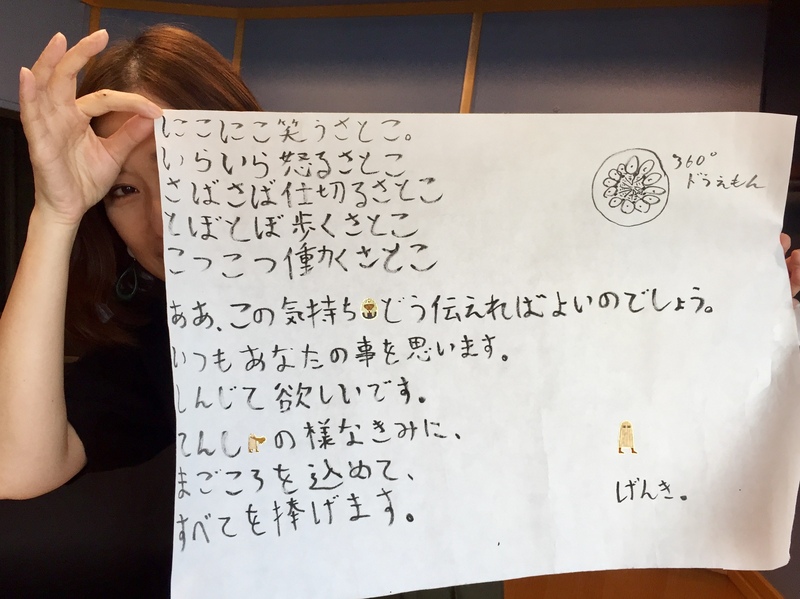 にこにこ笑うさとこ。
いらいら怒るさとこ
さばさば仕切るさとこ
とぼとぼ歩くさとこ
こつこつ働くさとこ
ああ、この気持ちどう伝えればよいのでしょう。
いつもあなたの事を思います。
しんじて欲しいです。
てんしの様なきみに、
まごころを込めて、
すべてを捧げます。
360°
ドラえもん
げんき。